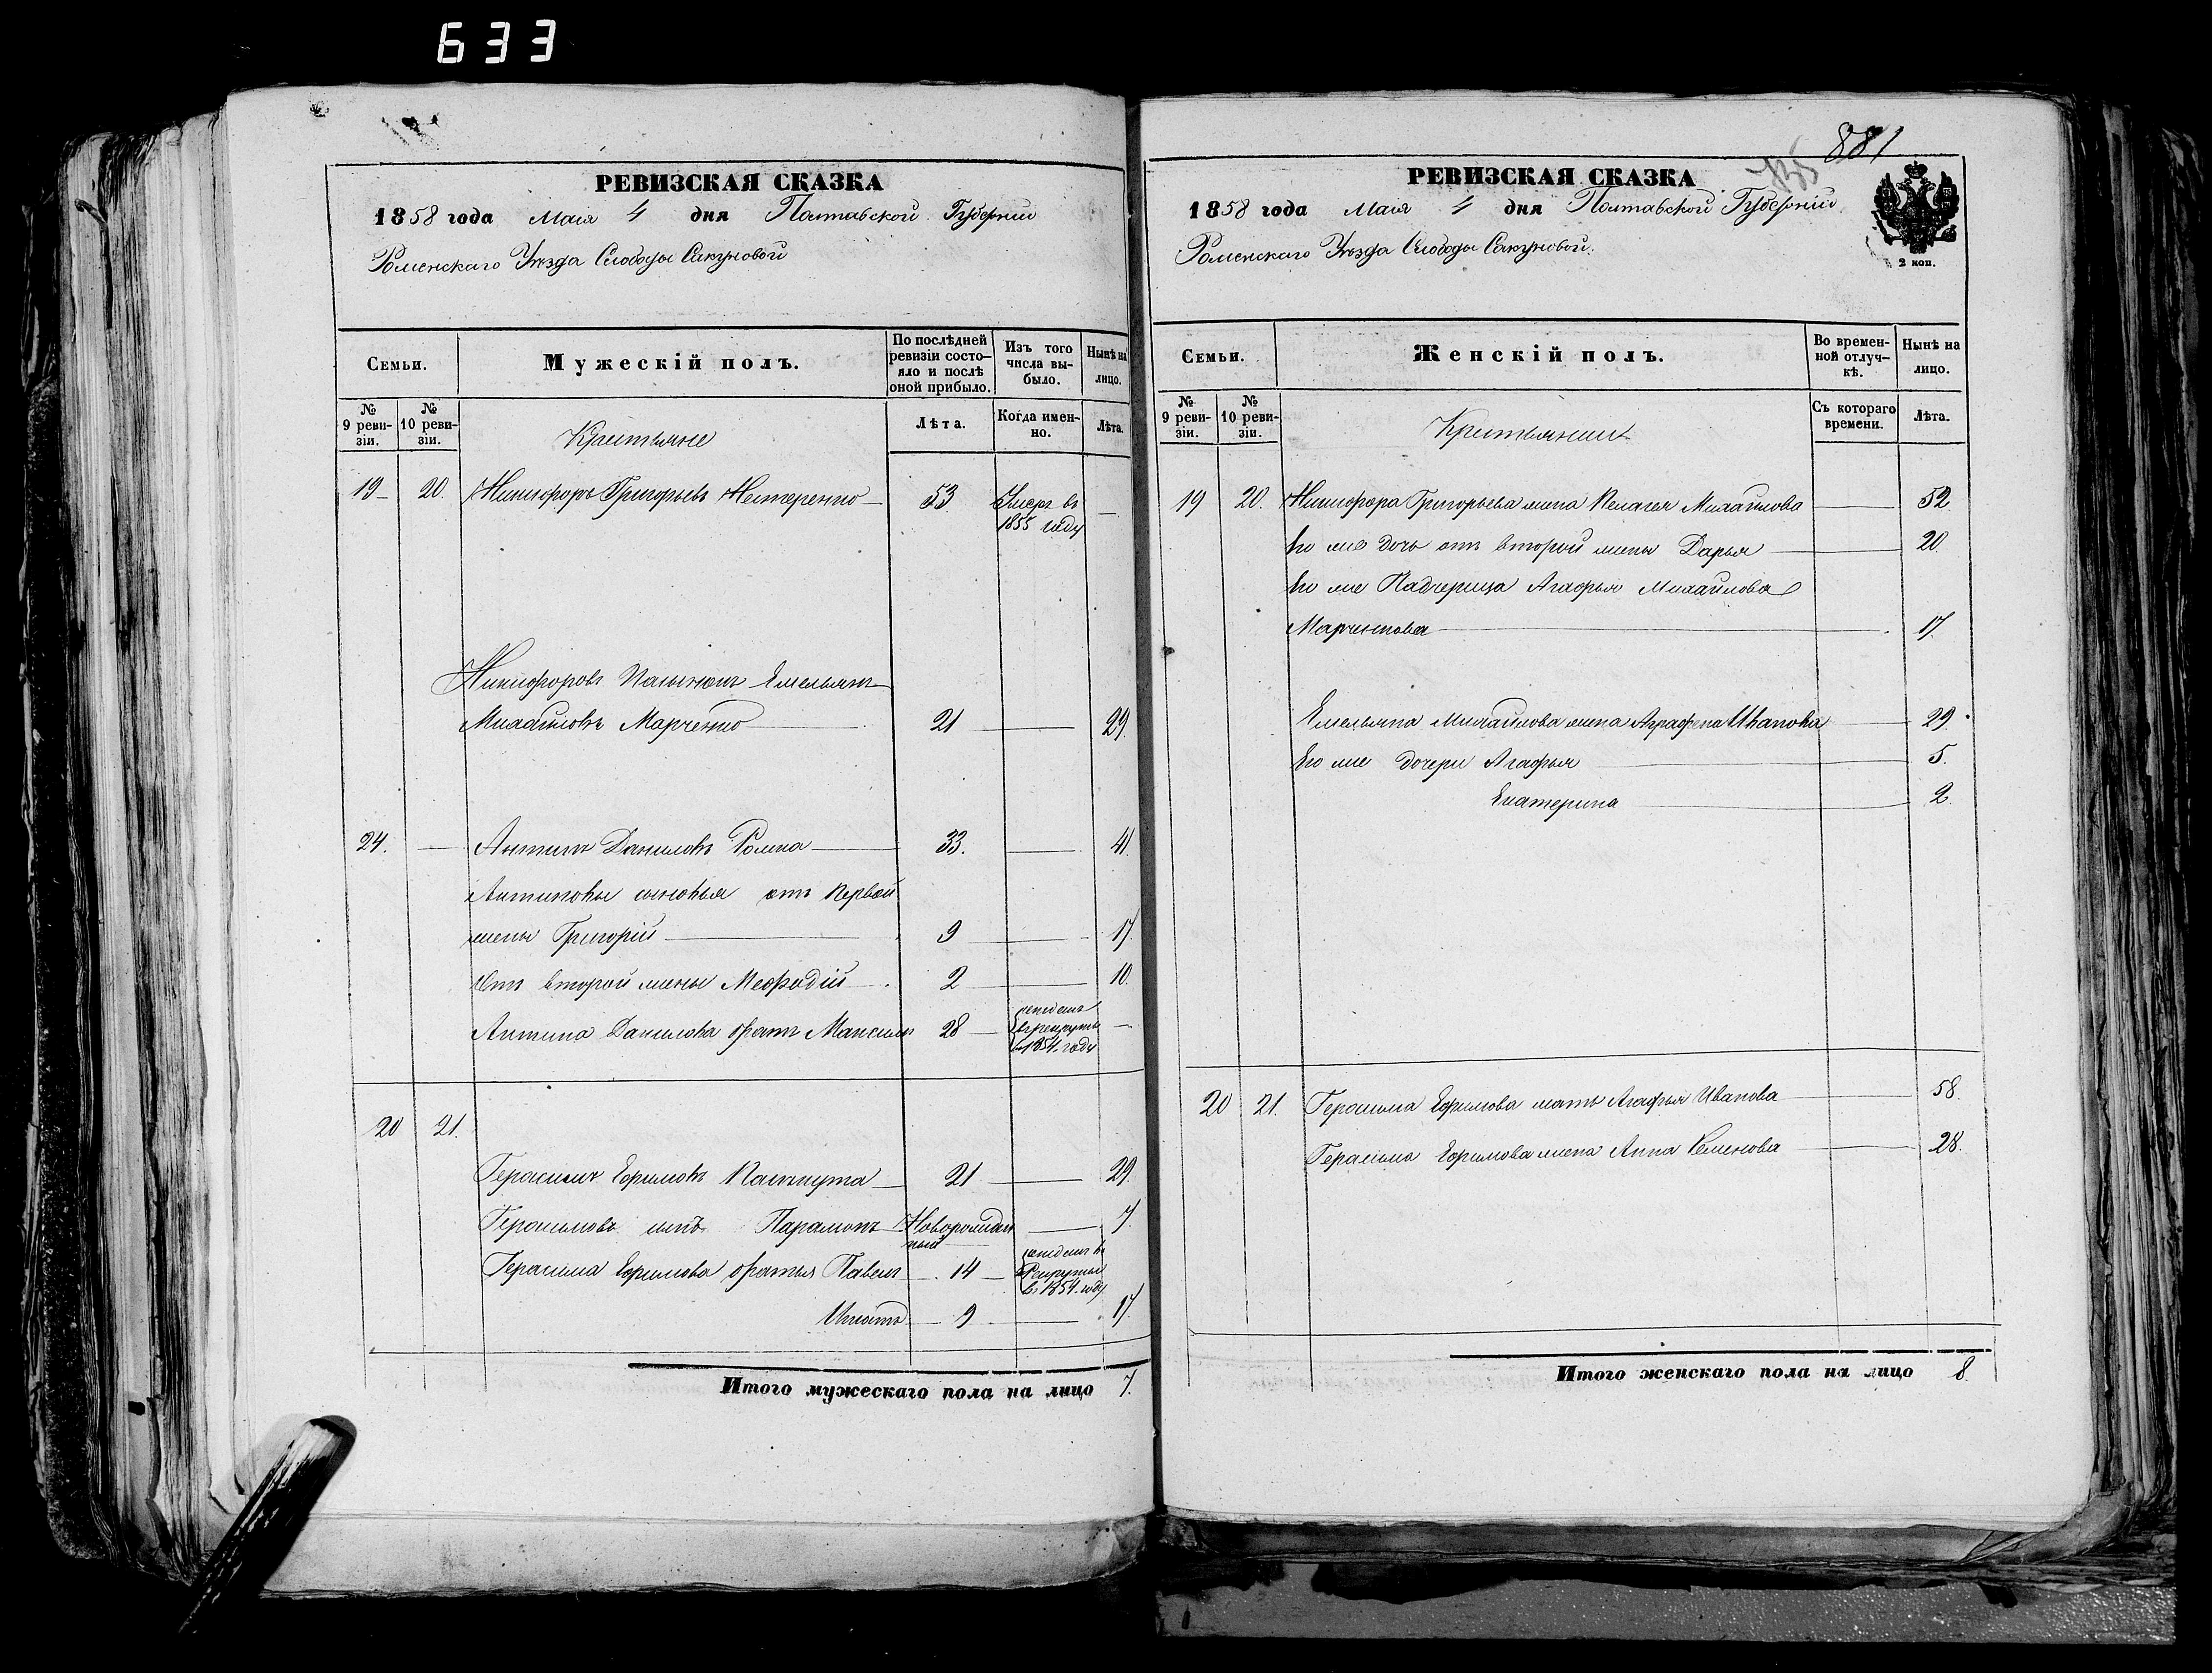 633
РЕВИЗСКАЯ СКАЗКА
1858 года Маія 4 дня Полтавской Губерніи
Роменскаго Уѣзда Слободы Сакуновой
Семьи.
Мужескій полъ.
По послѣдней ревизіи состо-
яло и послѣ
оной прибыло.
Изъ того
числа вы-
было.
Нынѣ на
лицо.
№
9 реви-
зіи.
№
10 реви-
зіи.
Крестьяне
Лѣта.
Когда имен-
но.
Лѣта.
19 20. Никифоръ Григорьевъ Нестеренко 53 Умеръ въ
1855 году
Никифоровъ Пасынокъ Емельянъ
Михайловъ Марченко 21 29.
24. Антипъ Даниловъ Ромна 33. 41.
Антиповы сыновья отъ первой
жены Григорій 9 17.
Отъ второй жены Мефодій 2 10.
Антипа Данилова братъ Максимъ 28
въ рекруты
въ 1854. году
20 21.
Герасимъ Ефимовъ 21 29.
Герасимовъ сынъ Парамонъ Новорожден
ный 7.
Герасима Ефимова братья Павелъ 14
Рекруты
в 1854. году
Игнатъ 9 17.
Итого мужескаго пола на лицо 7.
881
РЕВИЗСКАЯ СКАЗКА
1858 года Маія 4 дня Полтавской Губерніи
Роменскаго Уѣзда Слободы Сакуновой.
2 коп.
Семьи.
Женскій полъ.
Во времен-
ной отлуч-
кѣ.
Нынѣ на
лицо.
№
9 реви-
зіи.
№
10 реви-
зіи.
Крестьянки
Съ котораго
времени.
Лѣта.
19 20. Никифора Григорьева жена Пелагея Михайлова 52
Его же дочь отъ второй жены Дарья 20.
Его же Падчерица Агафья Михайлова
Марченкова 17.
Емельяна Михайлова жена Аграфена Иванова 29.
Его же дочери Агафья 5.
Екатерина 2.
20 21. Герасима Ефимова мать Агафья Иванова 58.
Герасима Ефимова жена Анна Семенова 28.
Итого женскаго пола на лицо 8.